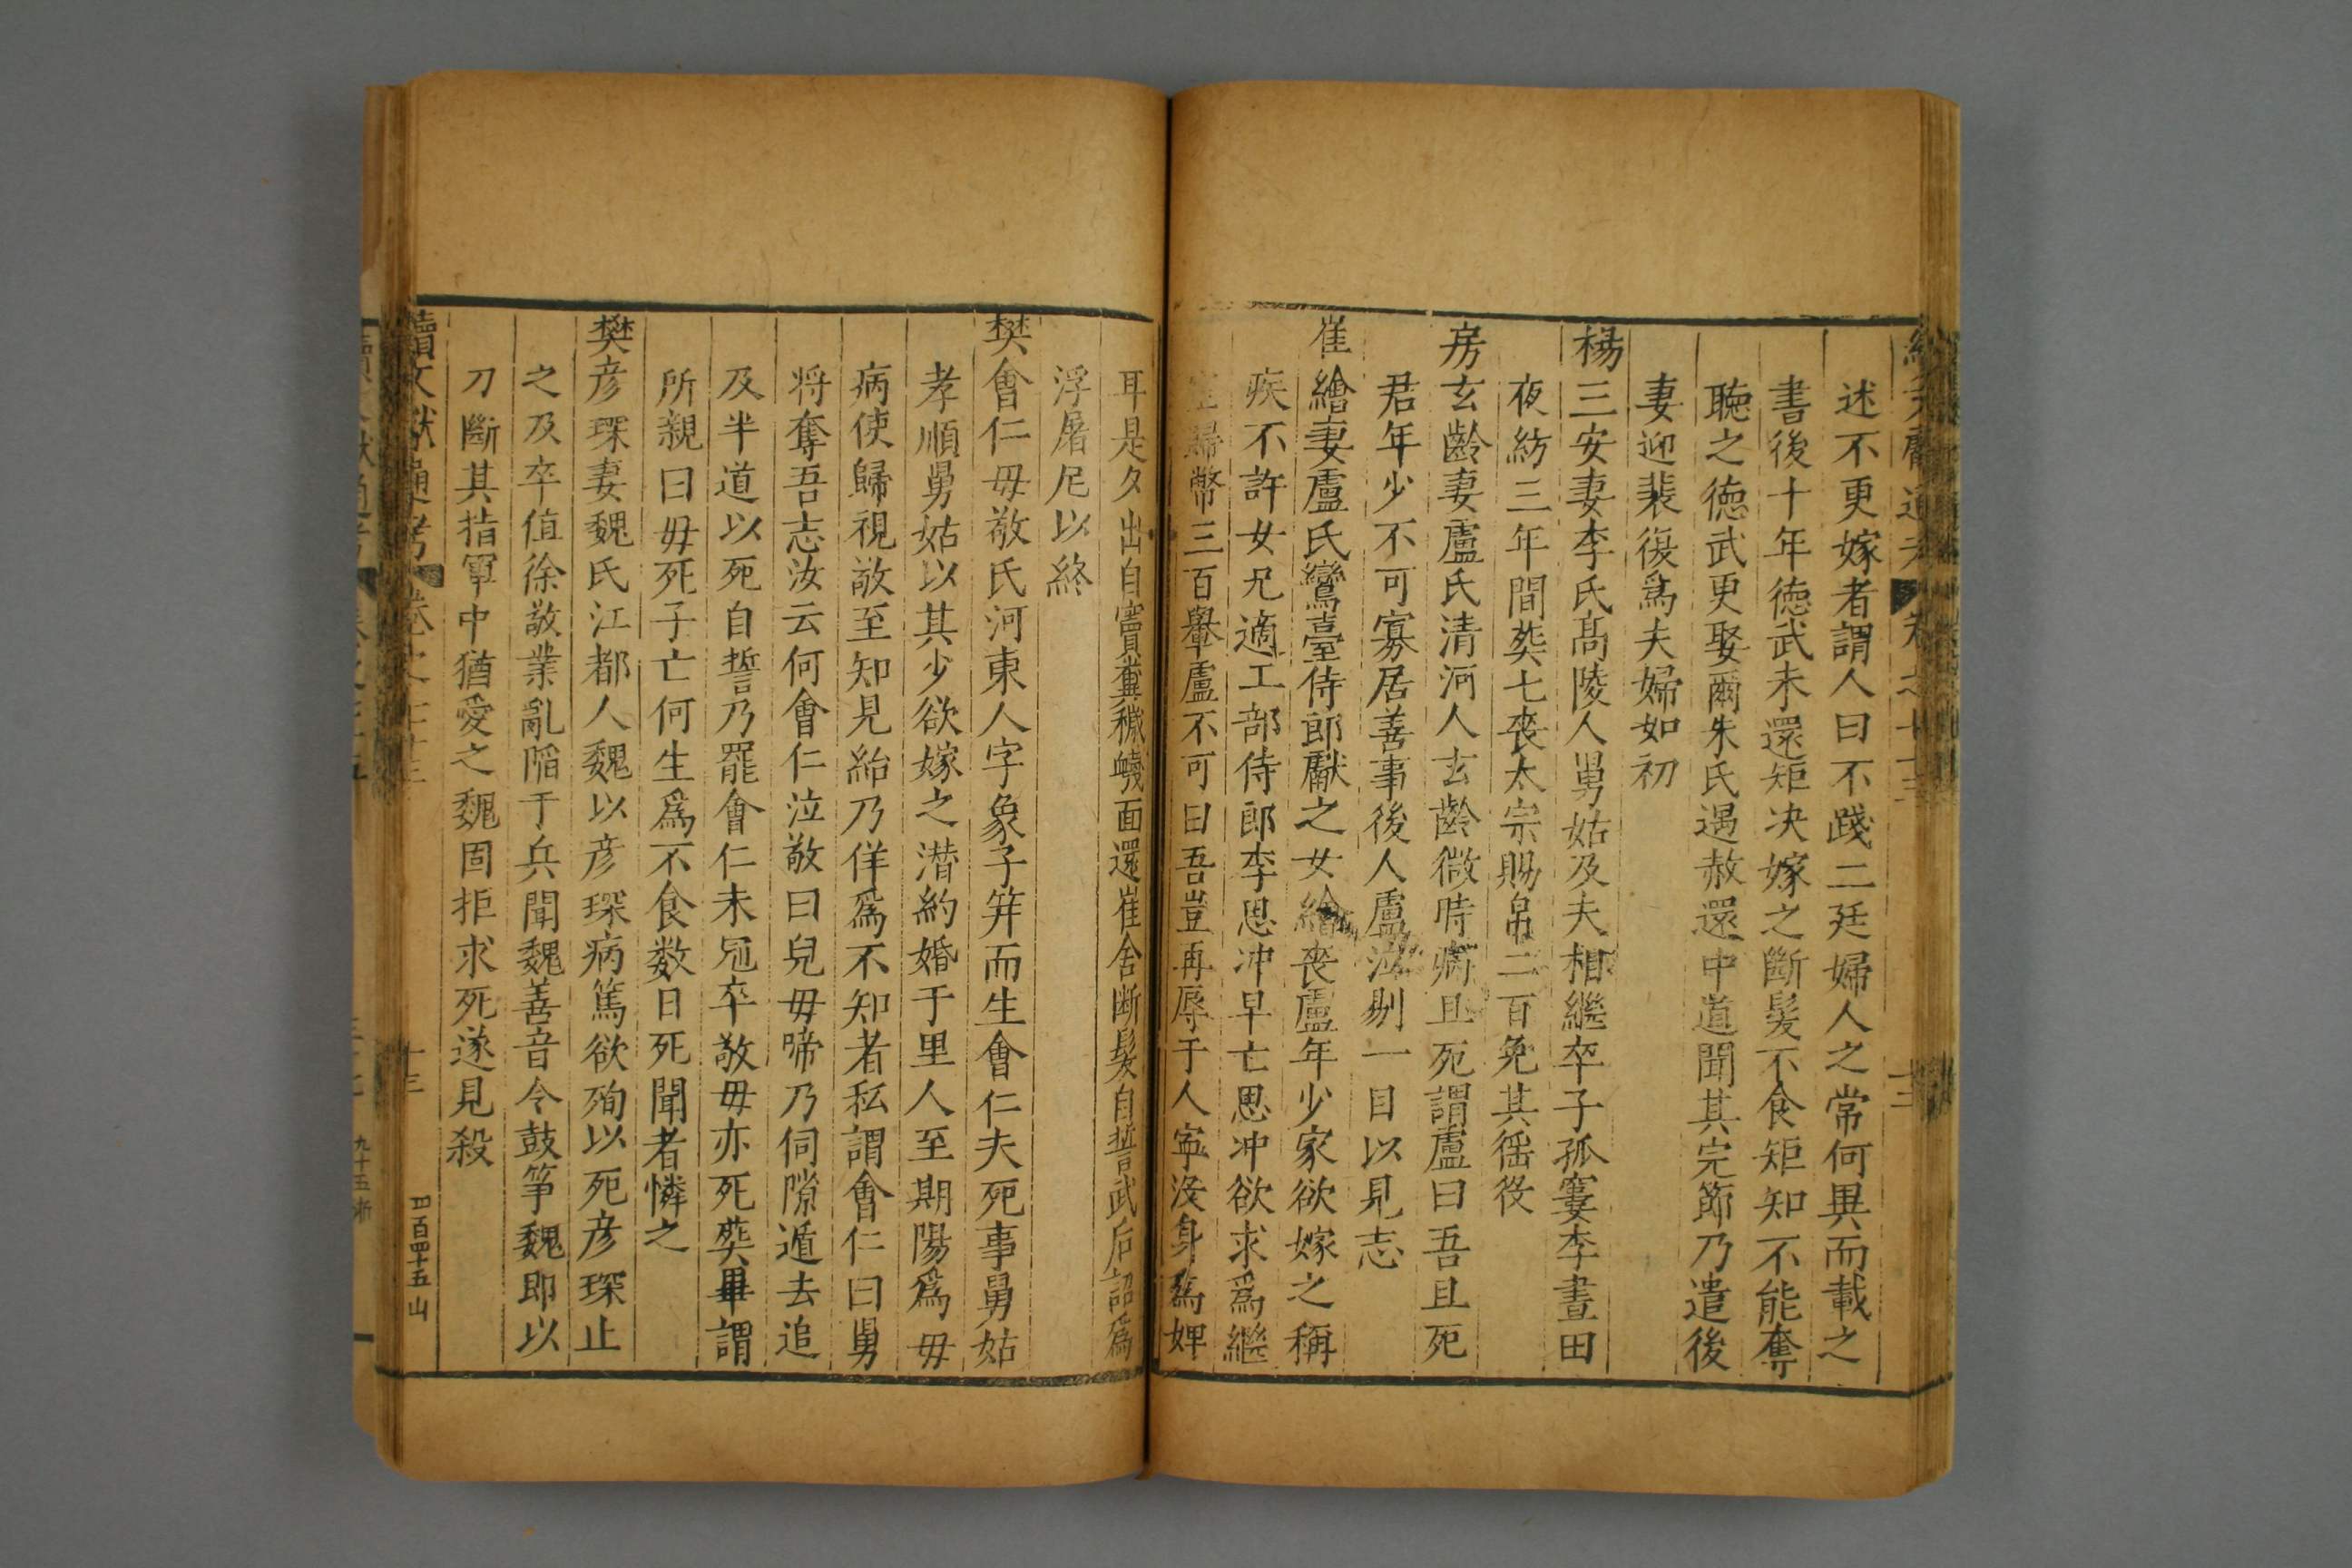 述不更嫁者謂人曰不踐二廷婦人之常何異而載之
書後十年德武未還矩决嫁之斷髮不食矩知不能奪
聴之德武更娶爾朱氏遇赦還中道聞其完節乃遣後
妻迎裴復爲夫婦如初
楊三安妻李氏髙陵人舅姑及夫相繼卒子孤窶李晝田
夜紡三年間葬七喪太宗賜帛二百免其徭役
房玄齡妻盧氏清河人玄齡微時病且死謂盧曰吾且死
君年少不可寡居善事後人盧泣剔一目以見志
崔繪妻盧氏鸞臺侍郎獻之女繪喪盧年少家欲嫁之稱
疾不許女兄適工部侍郎李思冲早亡思冲欲求爲繼
室歸幣三百轝盧不可曰吾豈再辱于人寜沒身爲婢
耳是夕出自竇糞穢衊面還崔舍断髮自誓武后詔爲
浮屠尼以終
樊會仁毋敬氏河東人字象子笄而生會仁夫死事舅姑
孝順舅姑以其少欲嫁之潜約婚于里人至期陽爲毋
病使歸視敬至知見紿乃佯爲不知者私謂會仁曰舅
将奪吾志汝云何會仁泣敬曰兒毋啼乃伺隙遁去追
及半道以死自誓乃罷會仁未冠卒敬毋亦死葬畢謂
所親曰毋死子亡何生爲不食数日死聞者憐之
樊彦琛妻魏氏江都人魏以彦琛病篤欲殉以死彦琛止
之及卒值徐敬業亂陷于兵聞魏善音令鼓筝魏即以
刀斷其指軍中猶愛之魏固拒求死遂見殺
續文獻通考 卷之七十三 十三 四百四十五 山